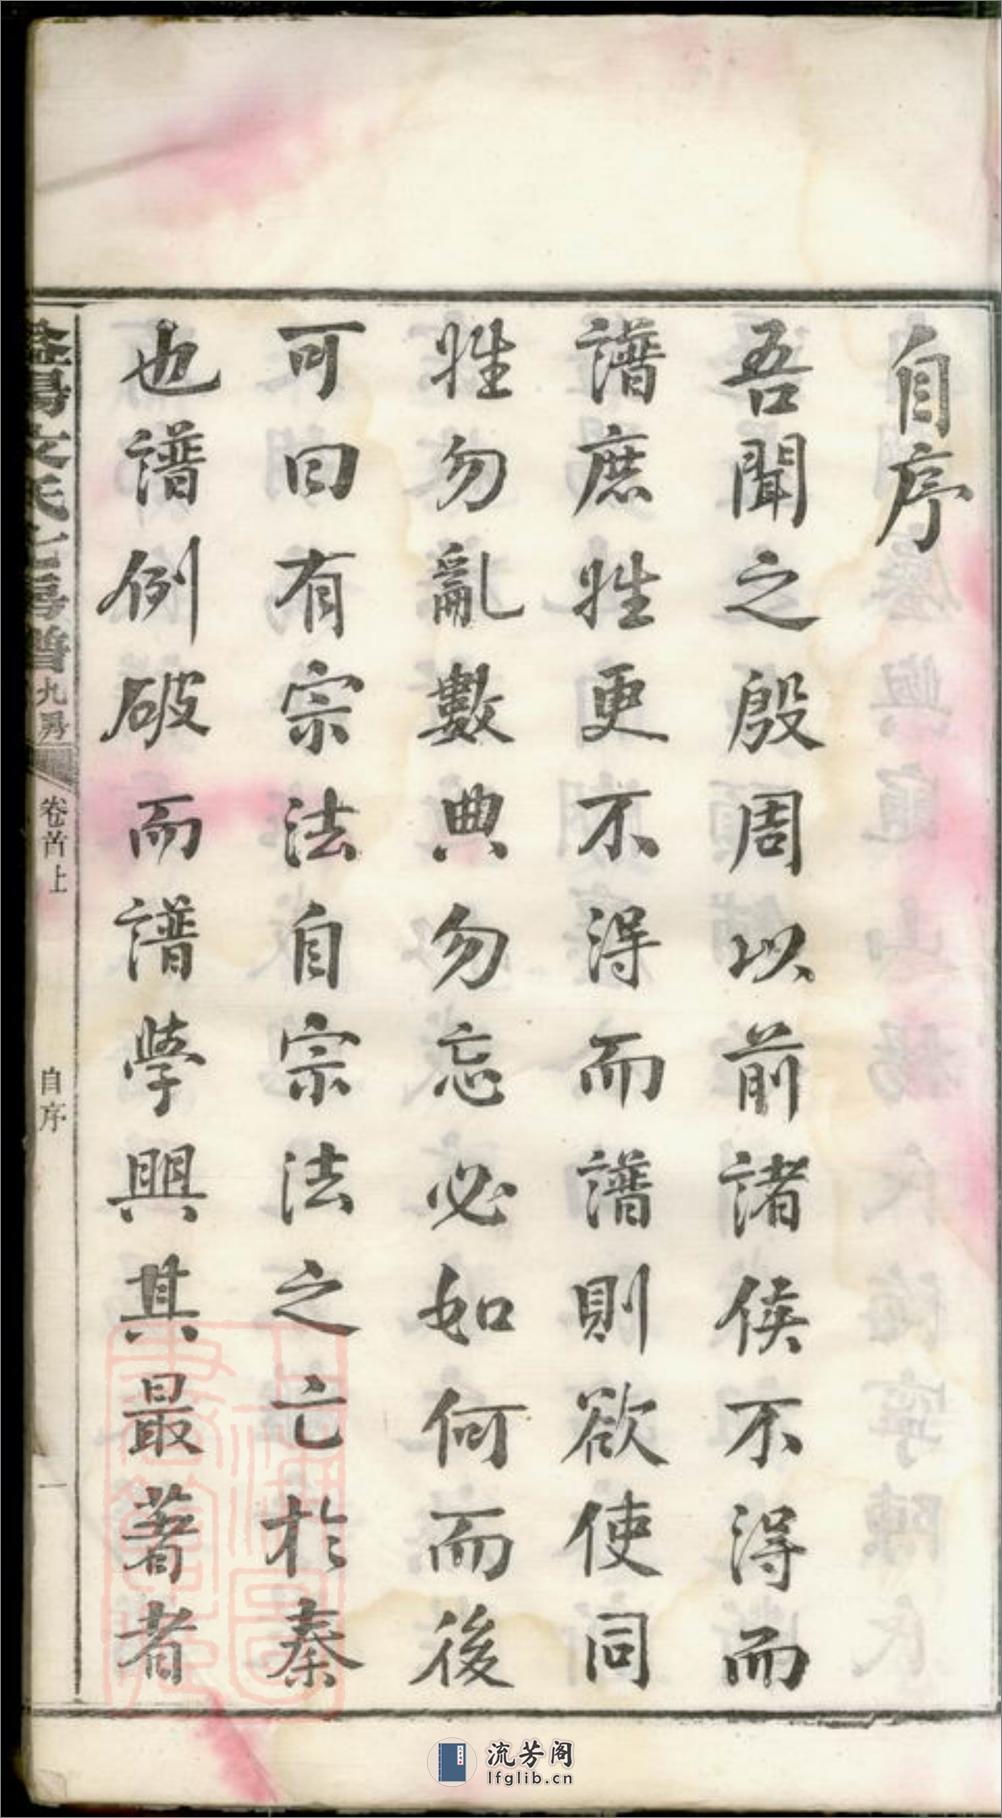 自序
吾聞之殷周以前諸侯不得而
譜庶姓更不得而譜則欲使同
姓勿亂數典勿忘必如何而後
可曰有宗法自宗法之亡於秦
也譜例破而譜學興其最著者
益陽文氏七房譜九男
卷首上
自序
一
上海圖書館藏
流芳阁
lfglib.cn